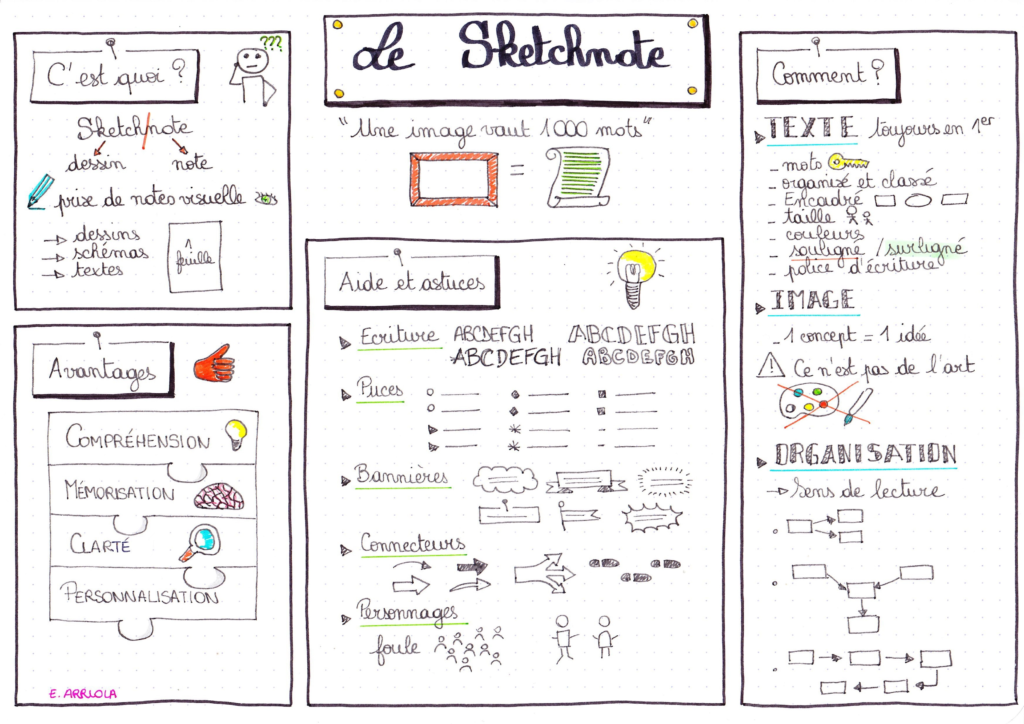 Le Sketchnote
"Une image vaut 1000 mots"
=
C'est quoi ?
???
Sketch/note
dessin note
prise de notes visuelle
dessins
schémas
textes
1 feuille
Avantages
COMPRÉHENSION
MÉMORISATION
CLARTÉ
PERSONNALISATION
E. ARRLOLA
Aide et astuces
Ecriture ABCDEFGH ABCDEFGH
ABCDEFGH ABCDEFGH
Puces
Bannières
Connecteurs
Personnages
foule
Comment ?
TEXTE toujours en 1er
- mots
- organisé et classé
- Encadré
- taille
- couleurs
- souligné / surligné
- police d'écriture
IMAGE
- 1 concept = 1 idée
! Ce n'est pas de l'art
ORGANISATION
Sens de lecture